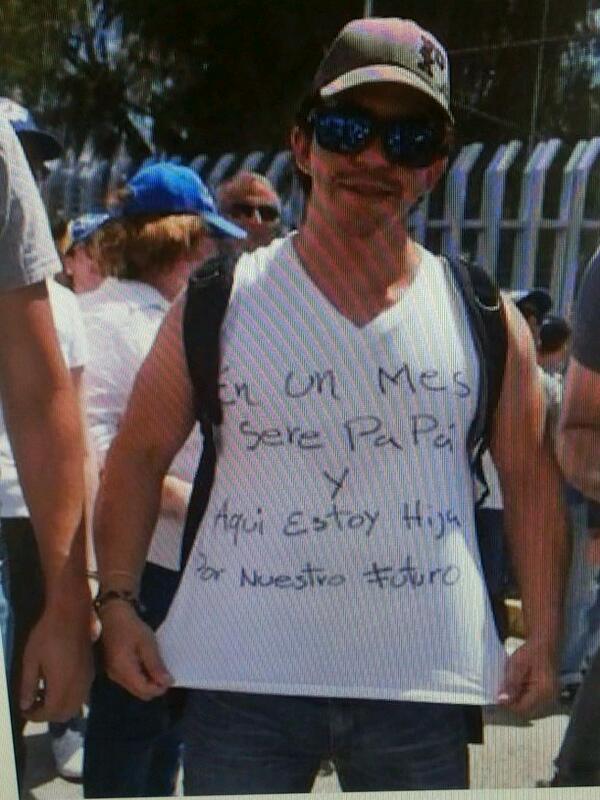 En un mes
sere PaPá
y
Aqui Estoy Hija
Por Nuestro Futuro